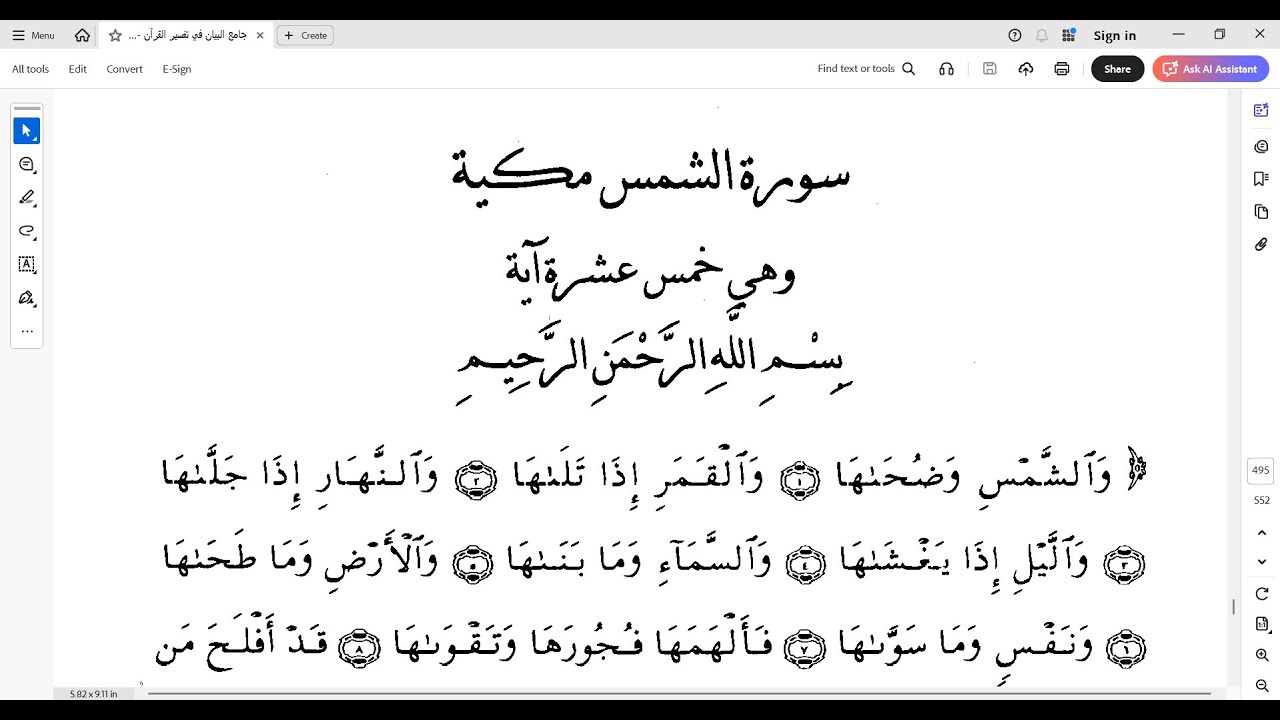 Menu
جامع البيان في تفسير القرآن -...
Create
Sign in
All tools
Edit
Convert
E-Sign
Find text or tools
Share
Ask AI Assistant
سورة الشمس مكية
وهي خمس عشرة آية
بِسْمِ اللَّهِ الرَّحْمَنِ الرَّحِيمِ
﴿ وَٱلشَّمْسِ وَضُحَىٰهَا ١ وَٱلْقَمَرِ إِذَا تَلَىٰهَا ٢ وَٱلنَّهَارِ إِذَا جَلَّىٰهَا
٣ وَٱلَّيْلِ إِذَا يَغْشَىٰهَا ٤ وَٱلسَّمَآءِ وَمَا بَنَىٰهَا ٥ وَٱلْأَرْضِ وَمَا طَحَىٰهَا
٦ وَنَفْسٍ وَمَا سَوَّىٰهَا ٧ فَأَلْهَمَهَا فُجُورَهَا وَتَقْوَىٰهَا ٨ قَدْ أَفْلَحَ مَن
495
552
5.82 x 9.11 in